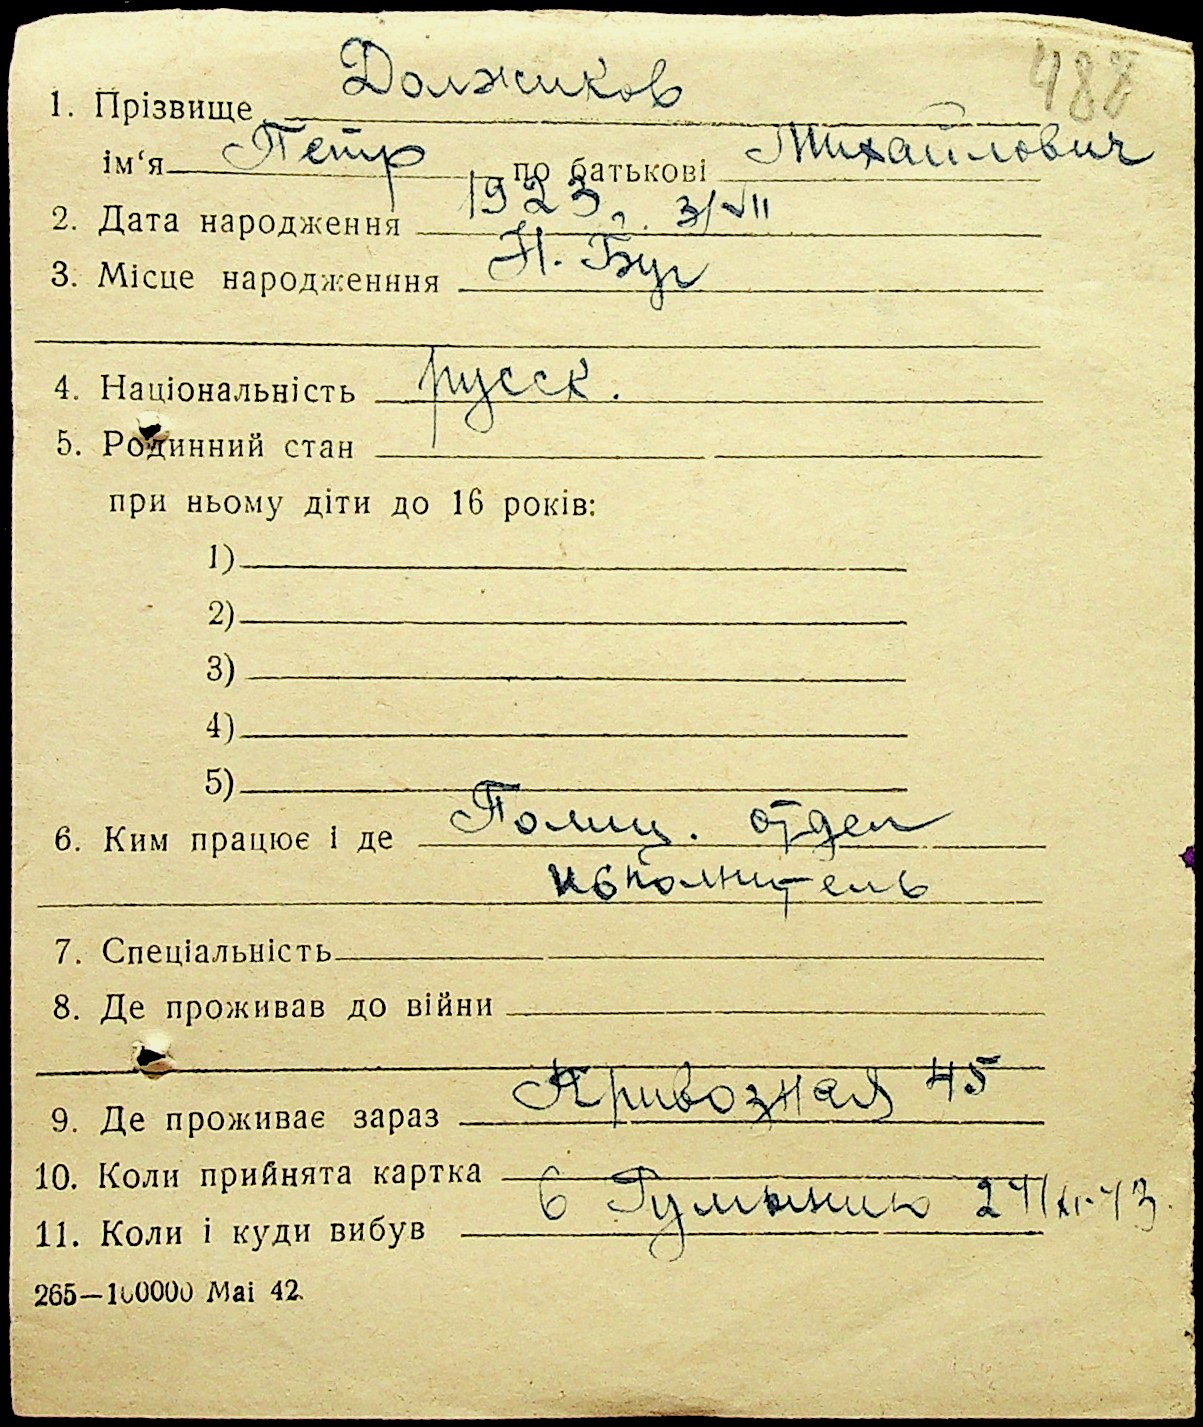 488
1. Прізвище Должиков
ім‘я Петр по батькові Михайлович
2. Дата народження 1923 3/VII
3. Місце народженння Н. Буг
4. Національність русск.
5. Родинний стан
при ньому діти до 16 років:
1)
2)
3)
4)
5)
6. Ким працює і де Полиц. отдел
исполнитель
7. Спеціальність
8. Де проживав до війни
9. Де проживає зараз Привозная 45
10. Коли прийнята картка
11. Коли і куди вибув в Румынию 24/XI-43.
265—100000 Маі 42.